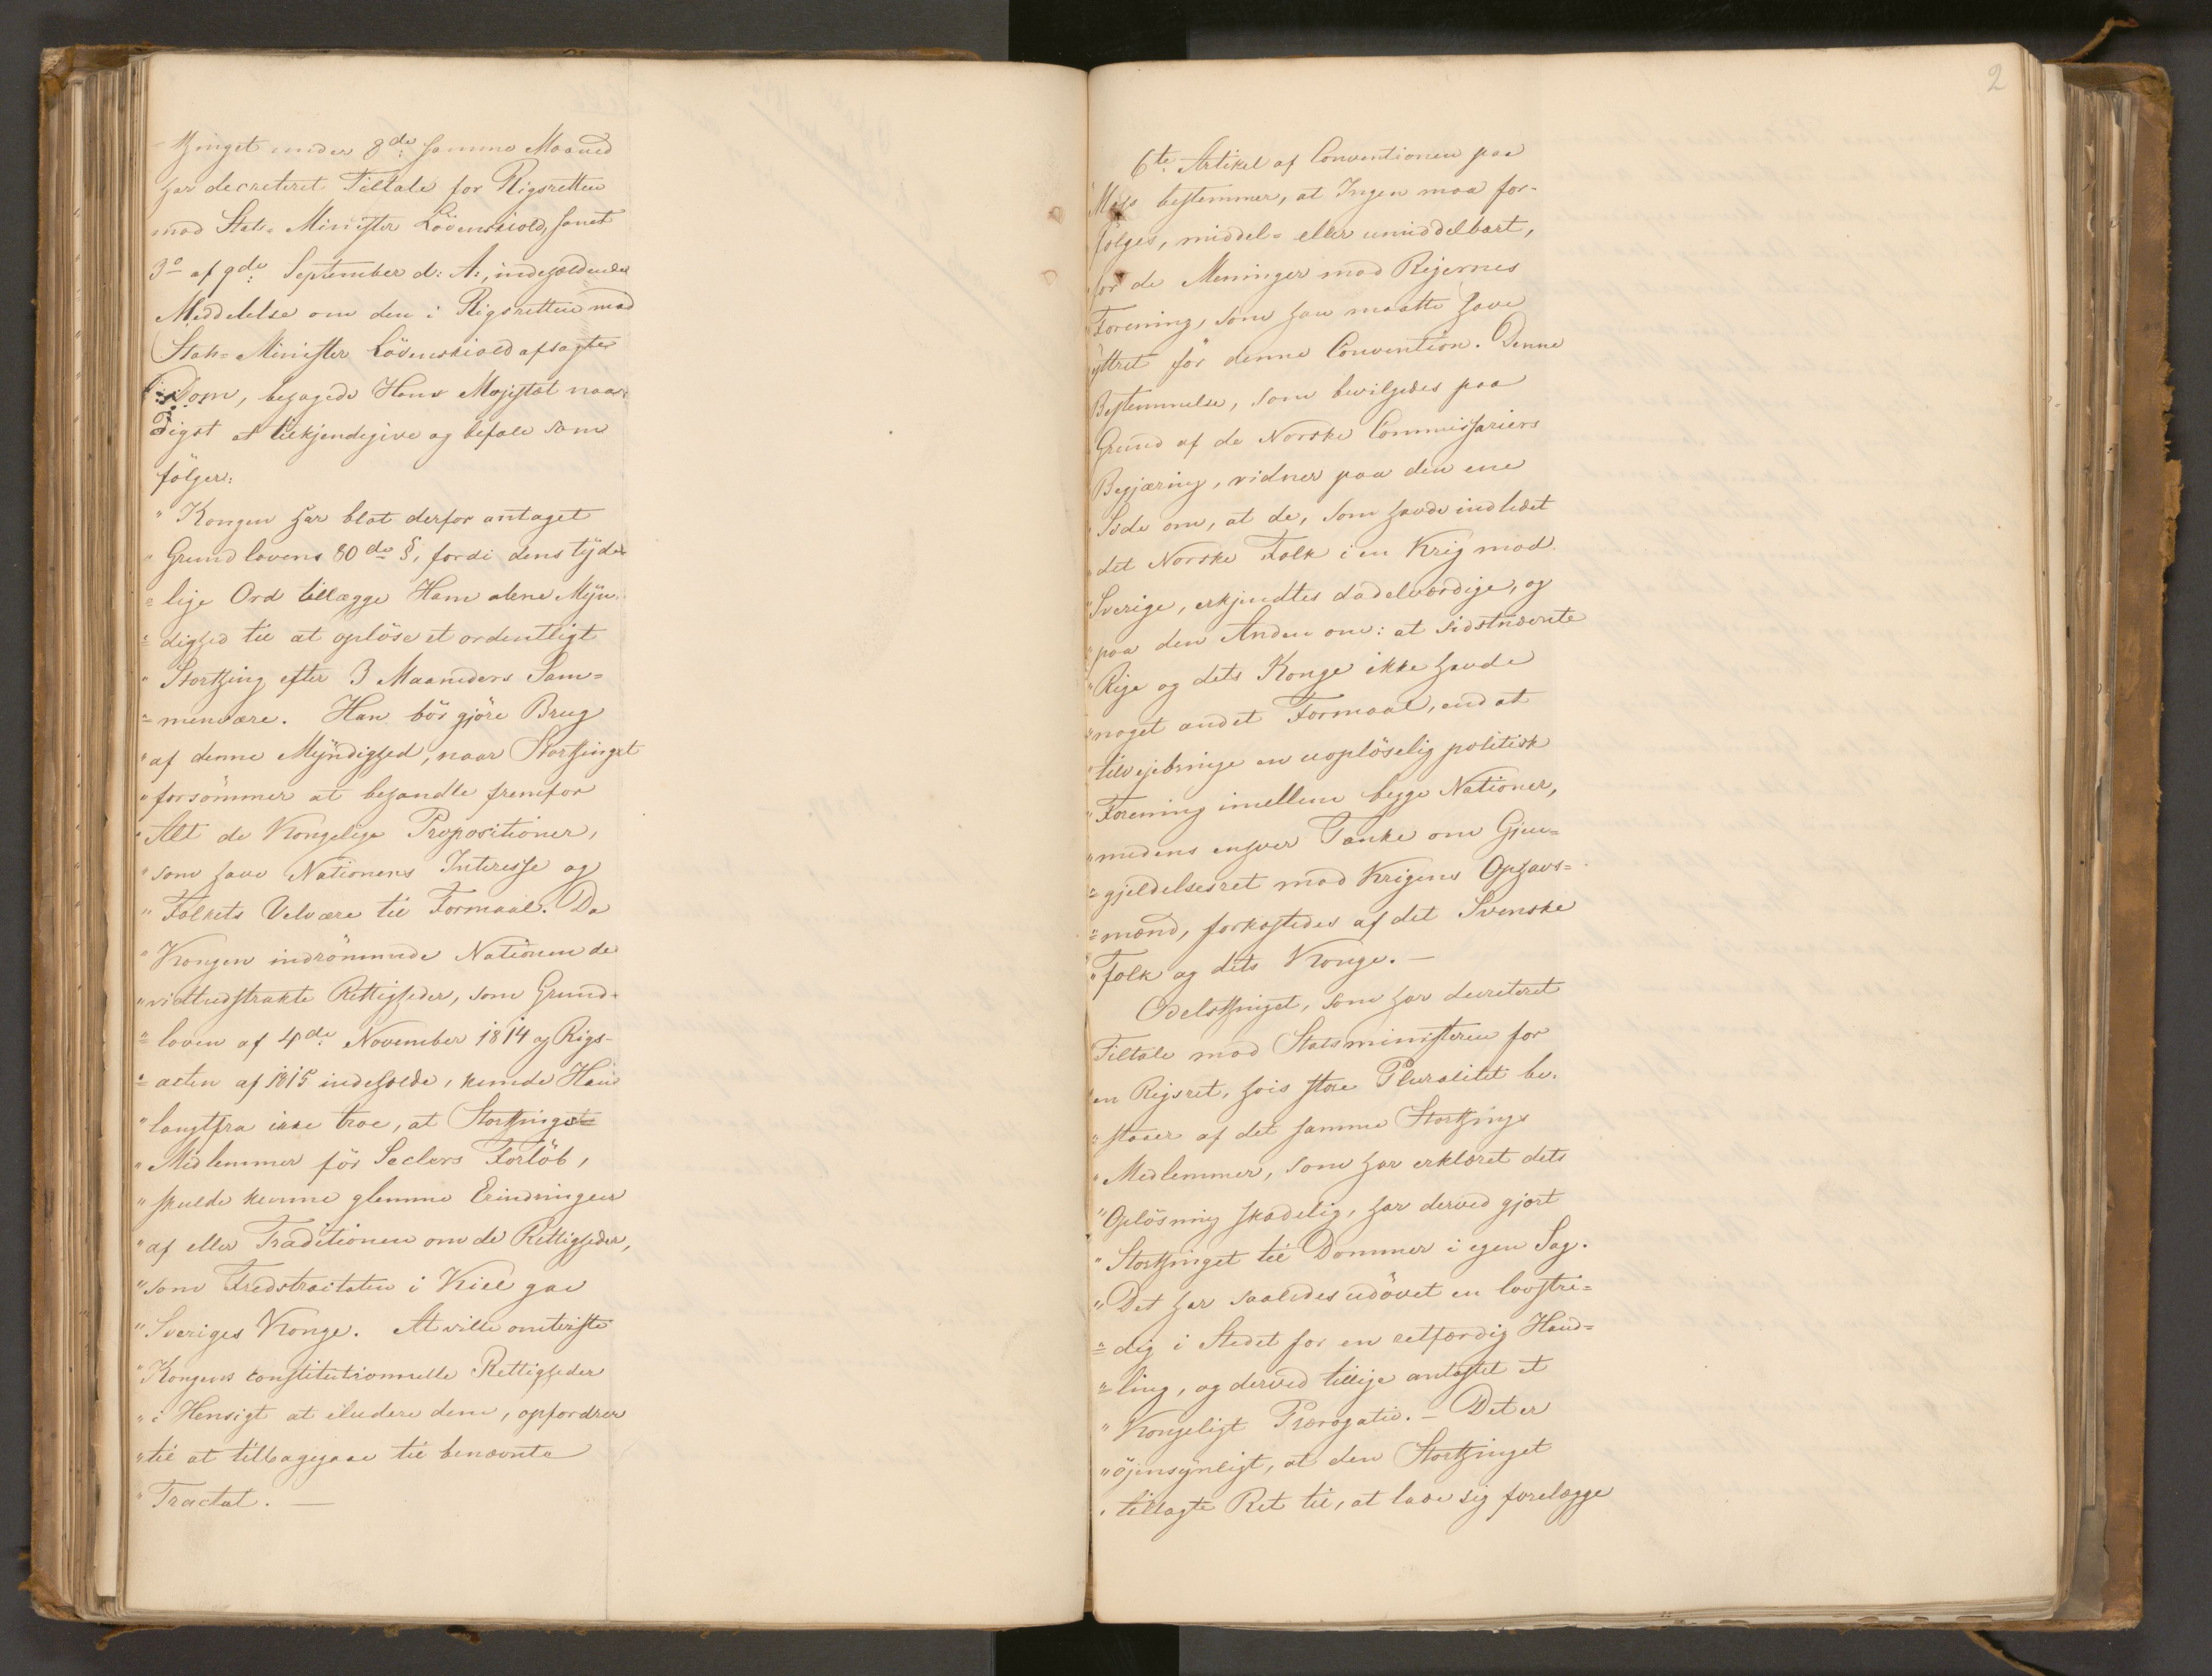 -thinget under 8de: samme Maaned
har decreteret Tiltale for Rigsretten
mod Stats-Minister Lövenskiold, samt
3o af 9de: September d: A:, indeholdende
Meddelelse om den i Rigsretten mod
Stats-Minister Lövenskiold afsagte
Dom, behagede Hans Majestæt naa-
digst at tilkjendegive og befale som
følger:
" Kongen har blot derfor antaget
" Grundlovens 80de §, fordi dens tyde-
" lige Ord tillægge Ham alene Myn-
" dighed til at oplöse et ordentligt
" Storthing efter 3 Maaneders Sam-
" menvære. Han bör gjöre Brug
" af denne Myndighed, naar Storthinget
" forsömmer at behandle fremfor
" Alt de Kongelige Propositioner,
" som have Nationens Interesse og
" Folkets Velvære til Formaal. Da
" Kongen indrömmede Nationen de
" vidtudstrakte Rettigheder, som Grund-
" loven af 4de: November 1814 og Rigs-
" acten af 1815 indeholde, kunde Han
" langtfra ikke troe, at Storthingets
" Medlemmer för Seclers Forlöb,
" skulde kunne glemme Erindringen
" af eller Traditionen om de Rettigheder,
" som Fredstractaten i Kiel gav
" Sveriges Konge. At ville omtviste
" Kongens constitutionnelle Rettigheder
" i Hensigt at eludere dem, opfordrer
" til at tilbagegaae til benævnte
" Tractat. —
2
6te: Artikel af Conventionen paa
" Moss bestemmer, at Ingen maa for-
" fölges, middel- eller umiddelbart,
" for de Meninger mod Rigernes
" Forening, som han maatte have
" yttret för denne Convention. Denne
" Bestemmelse, som bevilgedes paa
" Grund af de Norske Commissariers
" Begjæring, vidner paa den ene
" Side om, at de, som havde indledet
" det Norske Folk i en Krig mod
" Sverige, erkjendtes dadelværdige, og
" paa den Anden om: at sidstnævnte
" Rige og dets Konge ikke havde
" noget andet Formaal, end at
" tilvejebringe en uoplöselig politisk
" Forening imellem begge Nationer,
" medens enhver Tanke om Gjen-
" gjeldelsesret mod Krigens Ophavs-
" mænd, forkastedes af det Svenske
" Folk og dets Konge. —
Odelsthinget, som har decreteret
" Tiltale mod Statsministeren for
" en Rigsret, hvis store Pluralitet be-
" staaer af det samme Storthings
" Medlemmer, som har erklæret dets
" Oplösning skadelig, har derved gjort
" Storthinget til Dommer i egen Sag.
" Det har saaledes udövet en lovstri-
" dig i Stedet for en retfærdig Hand-
" ling, og derved tillige antastet et
" Kongeligt Prærogativ. – Det er
" öjensynligt, at den Storthinget
" tillagte Ret til, at lade sig forelægge